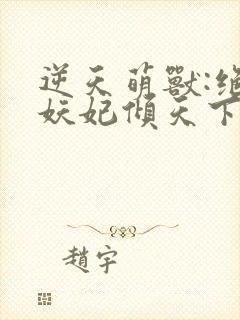 逆天萌獸:絕
妖妃傾天下
趙宇